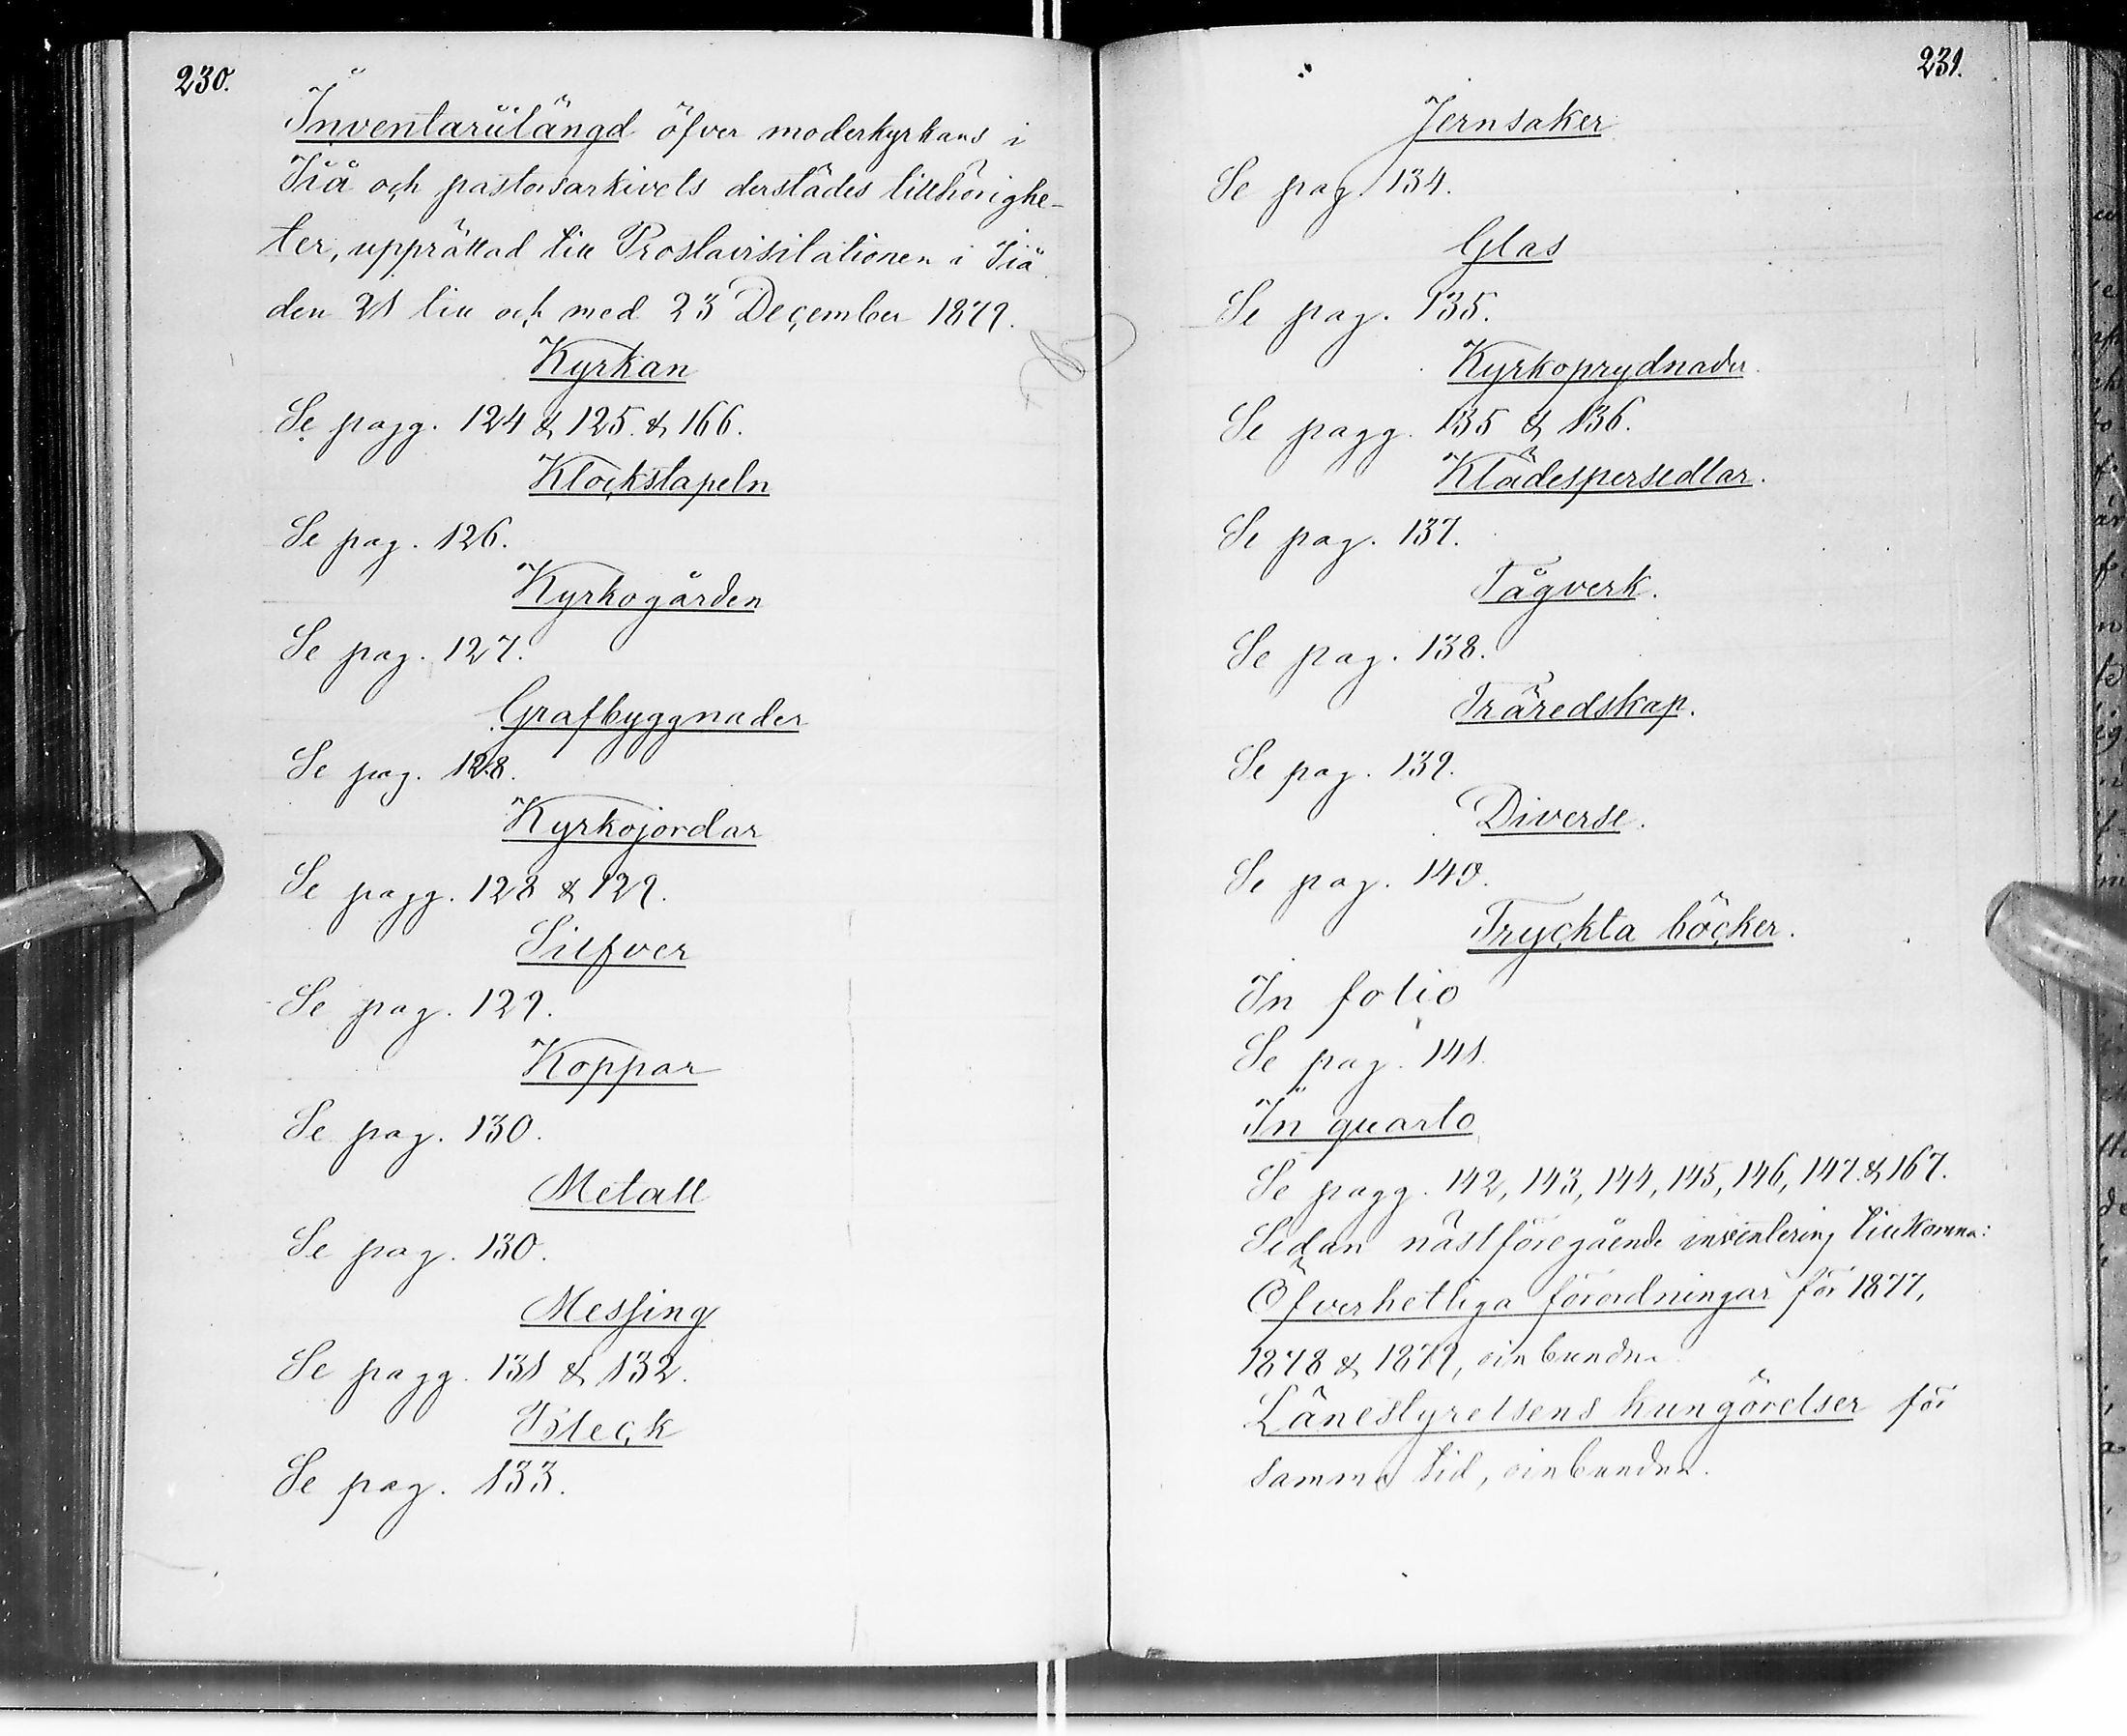 230.
Inventariilängd öfver moderkyrkans i
Iiå och pastorsarkivets derstädes tillhörighe-
ter, upprättad till Prostavisitationen i Iiå
den 21 till och med 23 December 1879.
Kyrkan
Se pagg. 124 & 125. & 166.
Klockstapeln
Se pag. 126.
Kyrkogården
Se pag. 127.
Grafbyggnader
Se pag. 128.
Kyrkojordar
Se pagg. 128 & 129.
Silfver
Se pag. 129.
Koppar
Se pag. 130.
Metall
Se pag. 130.
Messing
Se pagg. 131 & 132.
Bleck
Se pag. 133.
231.
Jernsaker
Se pag. 134.
Glas
Se pag. 135.
Kyrkoprydnader.
Se pagg. 135 & 136.
Klädespersedlar.
Se pag. 137.
Tågverk.
Se pag. 138.
Träredskap.
Se pag. 139.
Diverse.
Se pag. 140.
Tryckta böcker.
In folio
Se pag. 141.
In quarto
Se pagg. 142, 143, 144, 145, 146, 147. & 167.
Sedan nästföregående inventering tillkomna:
Öfverhetliga förordningar för 1877,
1878 & 1879, oinbundna
Länestyrelsens kungörelser för
samma tid, oinbundna.